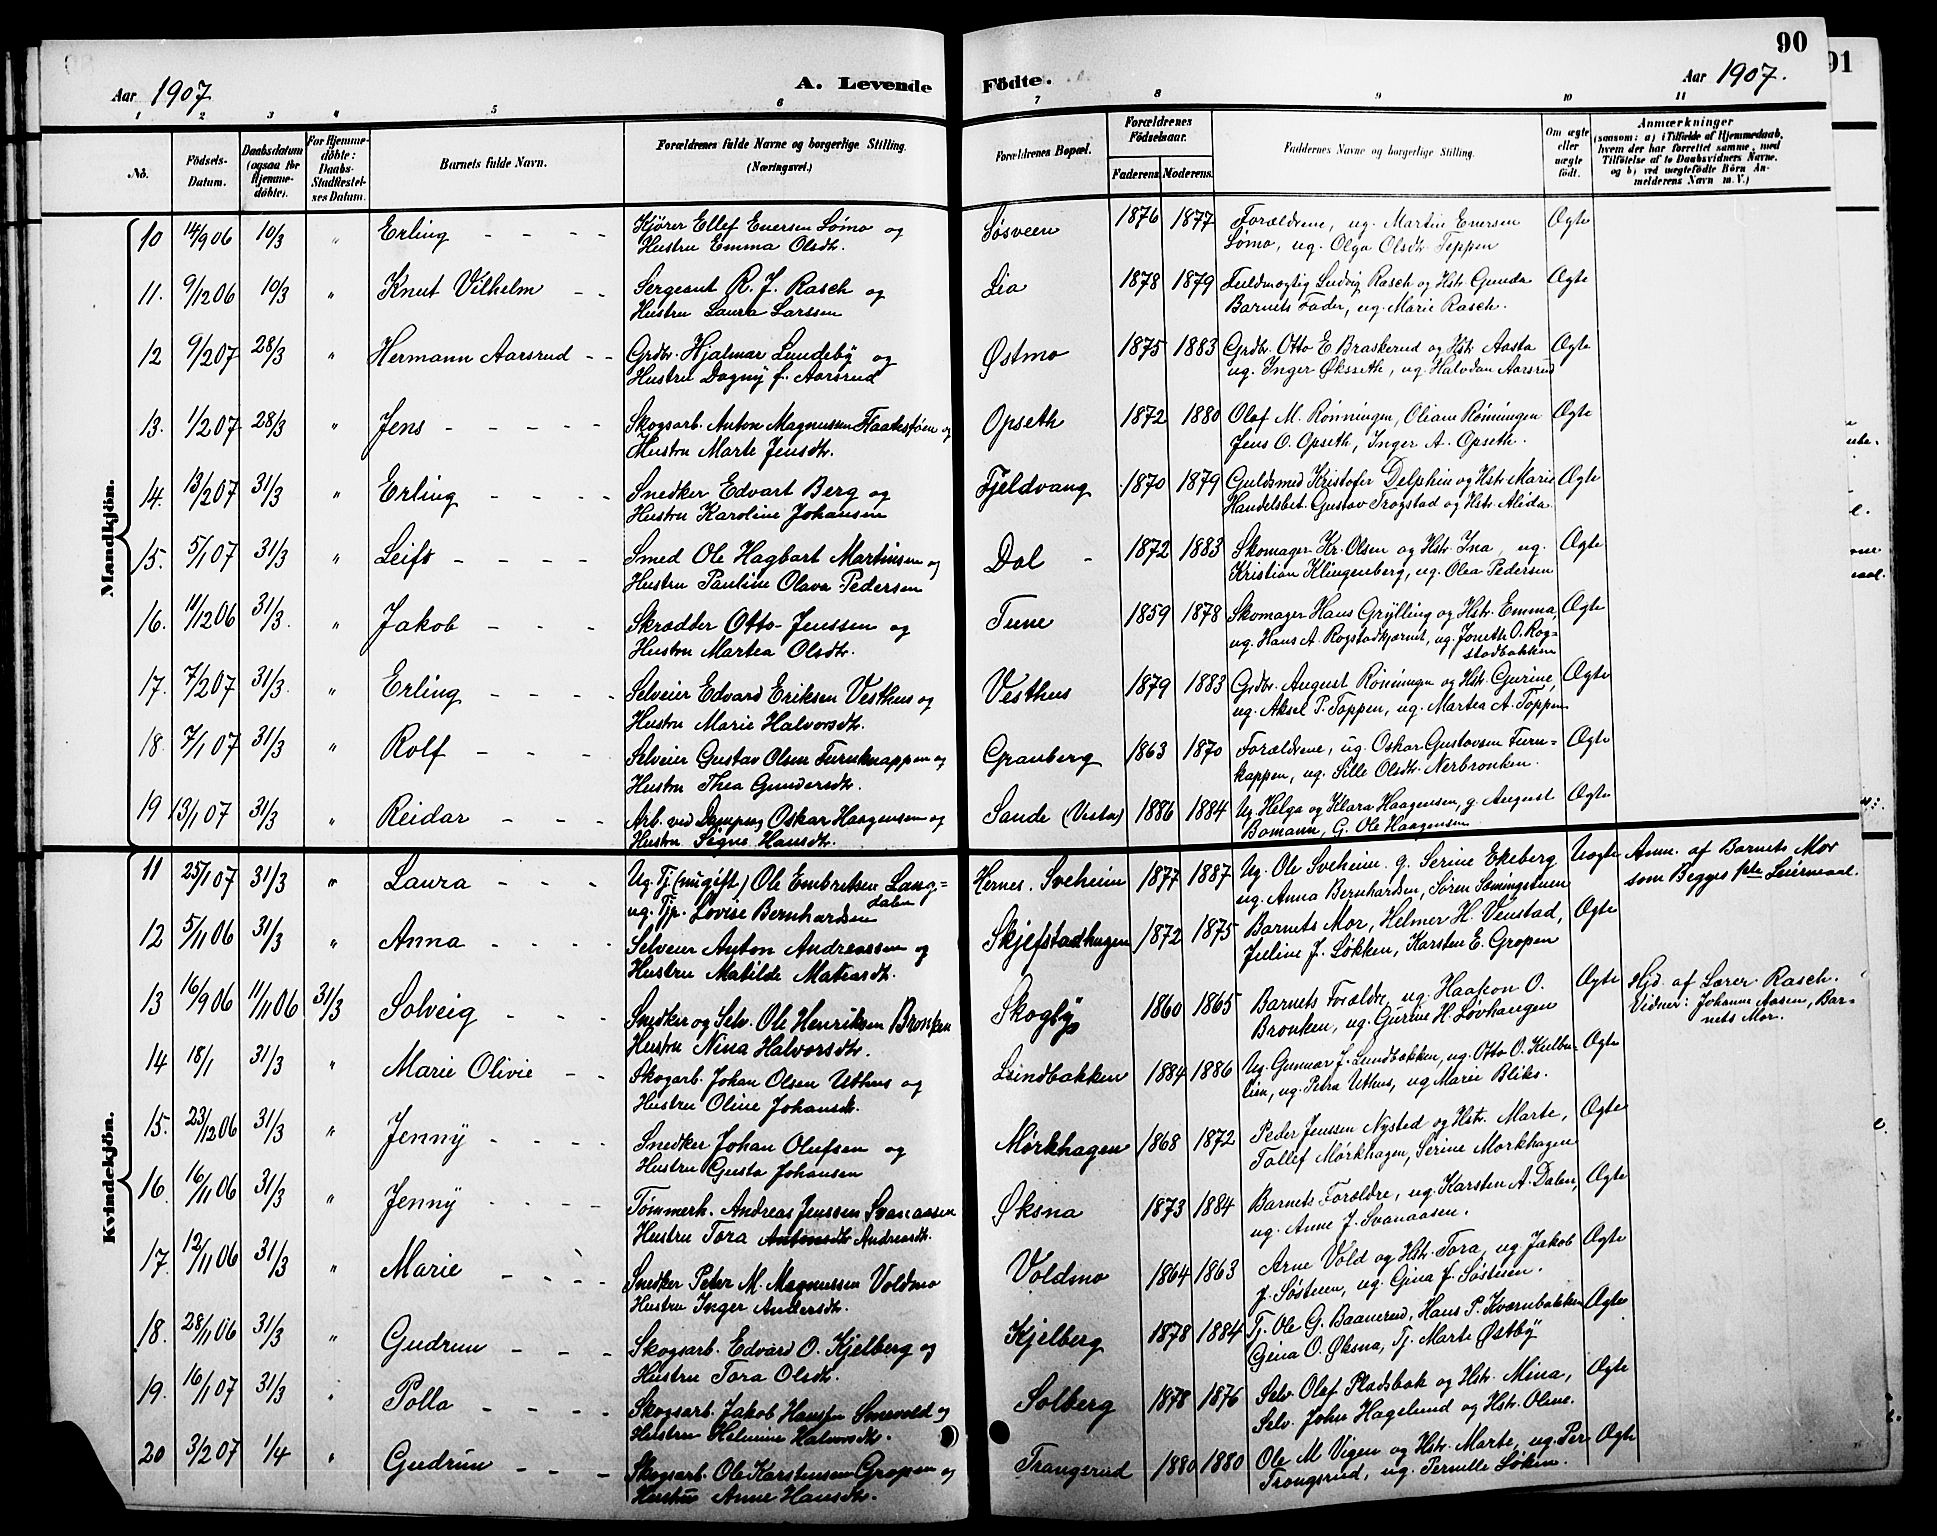 90
91
Aar 1907
A. Levende
Födte.
Aar 1907.
1 2 3 4 5 6 7 8 9 10 11
No.
Födsels-Datum.
Daabsdatum (ogsaa for Hjemme-döbte).
For Hjemme-döbte: Daabs-Stadfæstel-ses Datum.
Barnets fulde Navn.
Forældrenes fulde Navne og borgerlige Stilling. (Næringsvei.)
Forældrenes Bopæl.
Forældrenes Födselsaar.
Faderens. Moderens.
Faddernes Navne og borgerlige Stilling.
Om ægte eller uægte födt.
Anmærkninger
(saasom: a) i Tilfælde af Hjemmedaab, hvem der har forrettet samme, med Tilföielse af to Daabsvidners Navne. og b) ved uægtefödte Börn Anmelderens Navn m. V.)
Mandkjön.
10 14/9 06 10/3 " Erling Kjører Ellef Enersen Sømo og Søsveen 1876 1877 Forældrene, ug. Martin Enersen Ægte
Hustru Emma Olsdtr. Sømo, ug. Olga Olsdtr. Teppen
11. 9/12 06 10/3 " Knut Vilhelm Sergeant R. J. Rasch og Lia 1878 1879 Fuldmægtig Ludvig Rasch og Hstr. Gunda Ægte
Hustru Laura Larssen Barnets Fader, ug. Marie Rasch.
12 9/2 07 28/3 " Hermann Aarsrud Grdbr. Hjalmar Lundeby og Østmo 1875 1883 Grdbr. Otto E Braskerud og Hstr Aasta Ægte
Hustru Dagny f. Aarsrud ug. Inger Økseth, ug. Halvdan Aarsrud
13. 1/2 07 28/3 " Jens Skogsarb. Anton Magnussen Flaakstøen og Opseth 1872 1880 Olaf M. Rønningen, Oliane Rønningen Ægte
Hustru Marte Jensdtr. Jens O. Opseth, Inger A. Opseth.
14. 13/2 07 31/3 " Erling Snedker Edvart Berg og Fjeldvang 1870 1879 Guldsmed Kristofer Delphin og Hstr Marie Ægte
Hustru Karoline Johansen Handelsbet. Gustav Trogstad og Hstr. Alida
15. 5/1 07 31/3 " Leif Smed Ole Hagbart Martinsen og Dal 1872 1883 Skomager Kr. Olsen og Hstr Ina, ug. Ægte
Hustru Pauline Olava Pedersen Kristian Klingenberg, ug. Olea Pedersen
16. 11/12 06 31/3. " Jakob Skrædder Otto Jenssen og Tune 1859 1878 Skomager Hans Grylling og Hstr. Emma, Ægte
Hustru Martea Olsdtr. ug. Hans A. Rogstadkjærnet, ug. Jonette O. Rogstadbakken
17. 7/2 07 31/3. " Erling Selveier Edvard Eriksen Vesthus og Vesthus 1879 1883 Grdbr. August Rønningen og Hstr Gurine, Ægte
Hustru Marie Halvorsdtr. ug. Aksel P. Toppen, ug. Martea A. Toppen
18. 7/1 07 31/3 " Rolf Selveier Gustav Olsen Furuknappen og Granberg 1863 1870 Forældrene, ug. Oskar Gustavsen Furu- Ægte
Hustru Thea Gundersdtr. kappen, ug. Sille Olsdtr. Nerbronken.
19 13/1 07 31/3 " Reidar Arb. ved Dampsag Oskar Haagensen og Sande (Vesta) 1886 1884 Ug. Helga og Klara Haagensen, g. August Ægte
Hustru Signe Hansdtr. Bomann, G. Ole Haagensen
Kvindekjön.
11 25/1 07 31/3 " Laura Ug. Tj. (nugift) Ole Embretsen Lang-dalen Hernes. Sveheim 1877 1887 Ug. Ole Sveheim. g. Serine Ekeberg Uægte Anm. af Barnets Mor
ug. Tjp. Lovise Bernhardsen ug. Anna Bernhardsen, Søren Sæmingstuen som Begges 1ste Leiermaal.
12 5/11 06 31/3 " Anna Selveier Anton Andreassen og Skjefstadhagen 1872 1875 Barnets Mor, Helmer H. Venstad, Ægte
Hustru Matilde Matiasdtr. Juline J. Løkken, Karsten E. Gropen
13 16/9 06 11/11 06 31/3 Solveig Snedker og Selv. Ole Henriksen Bronken Skogby 1860 1865 Barnets Forældre, ug. Haakon O. Ægte Hjd. af Lærer Rasch.
Hustru Nina Halvorsdtr. Bronken, ug. Gurine H. Løvhaugen Vidner: Johanne Aasen, Bar-nets Mor.
14 18/1 31/3 " Marie Olivie Skogarb. Johan Olsen Uthus og Lundbakken 1884 1886 Ug. Gunnar J. Lundbakken, ug. Otto O. Kulbu- Ægte
Hustru Oline Johansdtr. lien, ug. Petra Uthus, ug Marie Bliks.
15. 23/12 06 31/3 " Jenny Snedker Johan Olufsen og Mørkhagen 1868 1872 Peder Jenssen Nysted og Hstr. Marte, Ægte
Hustru Gusta Johansen Tollef Mørkhagen, Serine Mørkhagen
16. 16/11 06 31/3 " Jenny Tømmerh. Andreas Jenssen Svanaasen Øksna 1873 1884 Barnets Forældre, ug. Karsten A. Dalen, Ægte
Hustru Tora Antonsdtr Andreasdtr. ug. Anne J. Svanaasen.
17. 12/11 06 31/3 " Marie Snedker Peter M. Magnussen Voldmo Voldmo 1864 1863 Arne Vold og Hstr. Tora, ug Jakob Ægte
Hustru Inger Andersdtr. J. Søsteen, ug. Gina J. Søsteen.
18. 28/11 06 31/3 " Gudrun Skogsarb. Edvard O. Kjelberg og Kjelberg 1878 1884 Tj. Ole G. Baanerud, Hans P. Kværnbakken Ægte
Hustru Tora Olsdtr. Gina O. Øksna, Tj. Marte Østby
19. 16/1 07 31/3 " Polla Skogsarb. Jakob Hansen Smevold og Solberg 1878 1876 Selv. Olaf Pladsbak og Hstr. Mina, Ægte
Hustru Helmine Halvorsdtr. Selv. John Hagelund og Hstr. Oline.
20 3/2 07 1/4 " Gudrun Skogsarb. Ole Karstensen Gropen og Trangsrud 1880 1880 Ole M Vigen og Hstr. Marte, ug. Per Ægte
Hustru Anne Hansdtr. Trangsrud, ug. Pernille Løken.